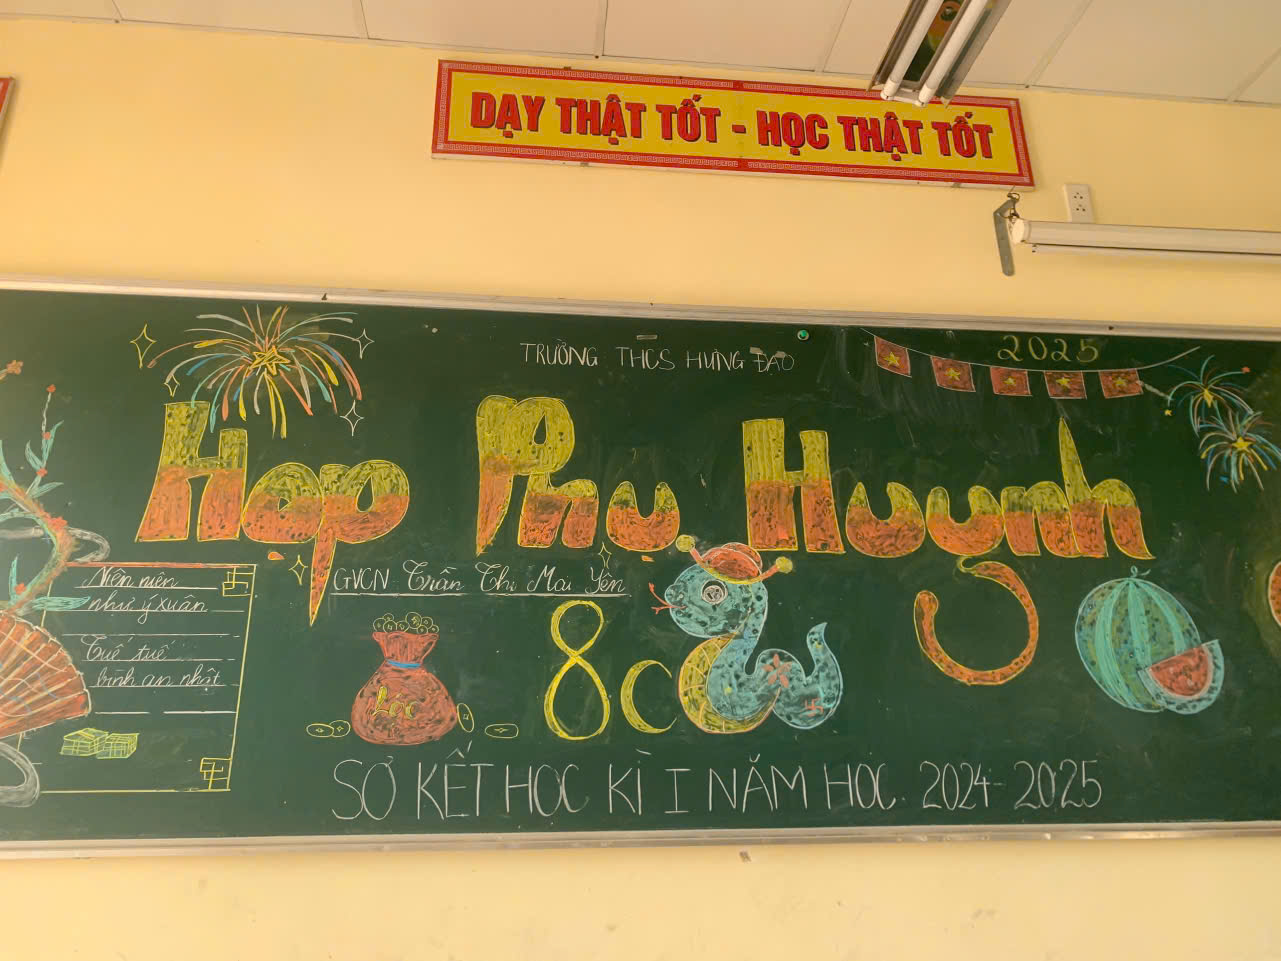 DẠY THẬT TỐT - HỌC THẬT TỐT
TRƯỜNG THCS HƯNG ĐẠO
2025
Họp Phụ Huynh
GVCN Trần Thị Mai Yên
8c
Niên niên
như ý xuân
Tuế tuế
bình an nhật
Lộc
SƠ KẾT HỌC KÌ I NĂM HỌC 2024-2025